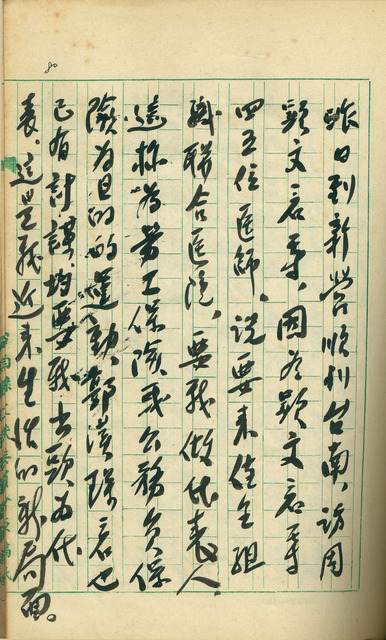 昨日到新營順利台南訪周
穎文君等,因為穎文君等
四五位醫師,說要來住仝組
織聯合醫院,要我做代表人
這称為勞工保險或公務員保
險為目的的運動,郭漢琛君也
已有計謀,均要我出頭為代
表,這是我近來生活的新局面。